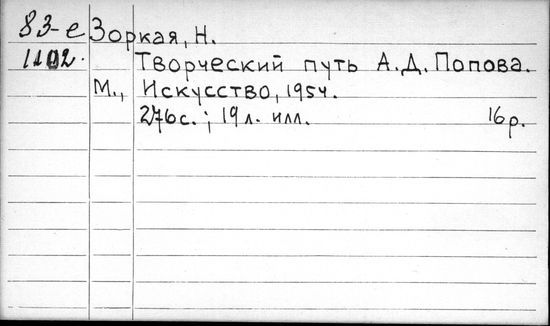 83-е Зоркая, Н.
1102. Творческий путь А.Д. Попова.
М., Искусство, 1954.
276с.; 19л. илл. 16р.